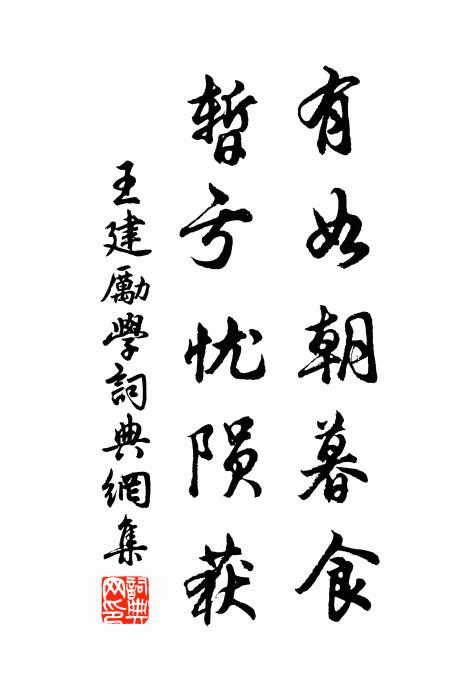 有如朝暮食
暂亏忧陨获
王建勵學詞典網集
詞典网印